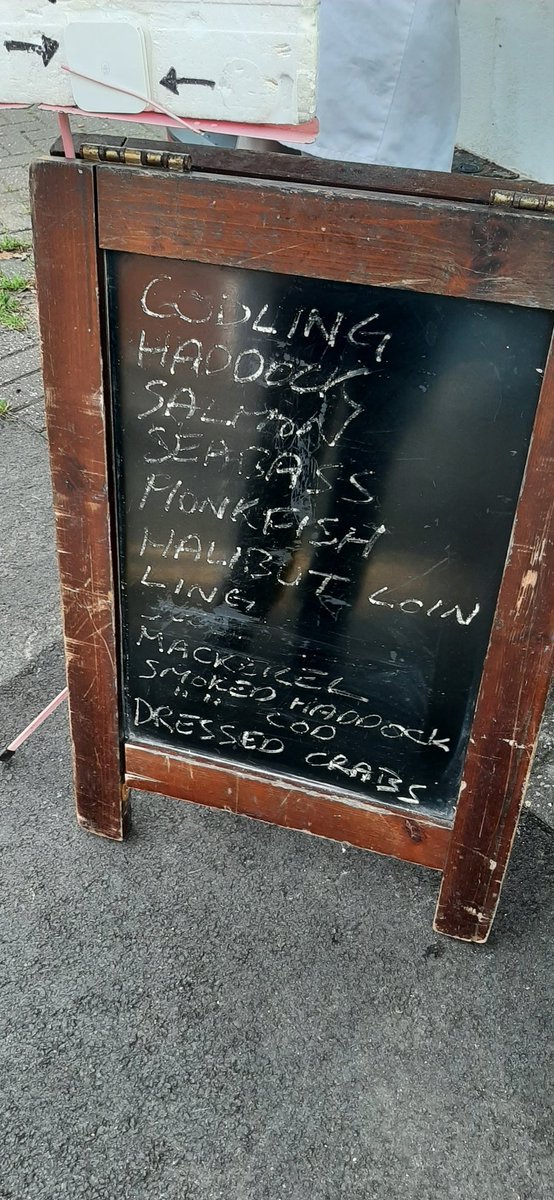 CODLING
HADDOCK
SALMON
SEABASS
MONKFISH
HALIBUT LOIN
LING
MACKEREL
SMOKED HADDOCK
" " COD
DRESSED CRABS